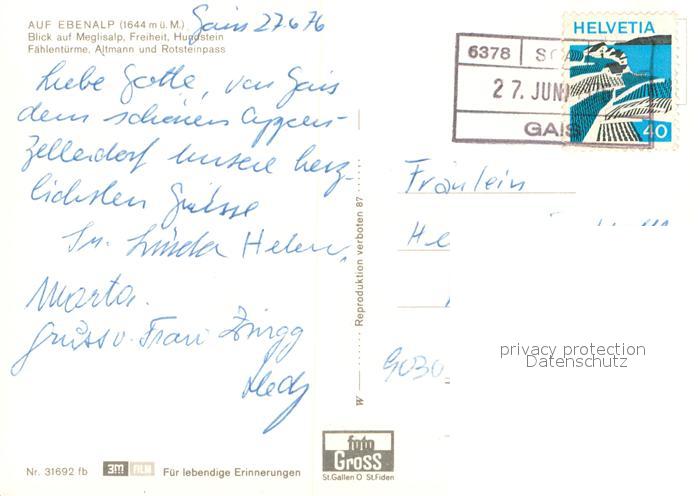 AUF EBENALP (1644 m ü. M.)
Blick auf Meglisalp, Freiheit, Hundstein
Fählentürme, Altmann und Rotsteinpass
Gais 27.6.76
Liebe Gotte, von Gais
dem schönen Appen-
zellerdorf unsere herz-
lichsten Grüsse
Linda Helen,
Marta.
Gruss v. Frau Zingg
Hedy
HELVETIA
40
6378
27. JUNI
GAIS
Fräulein
He
9030
Reproduktion verboten 87
W
privacy protection
Datenschutz
Nr. 31692 fb 3M FILM Für lebendige Erinnerungen
foto
Gross
St.Gallen O St.Fiden